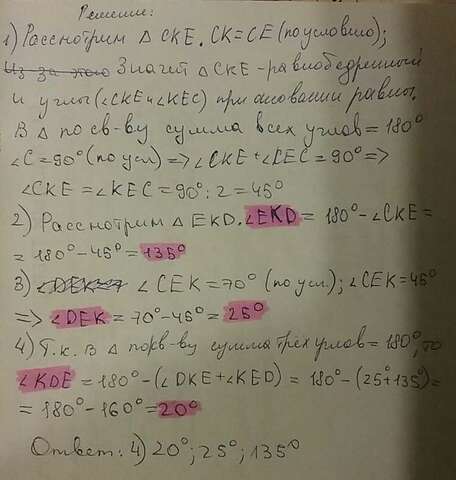 Решение:
1) Рассмотрим △ CKE. CK=CE (по условию);
Из за этого Значит △CKE - равнобедренный
и углы (∠CKE и ∠KEC) при основании равны.
В △ по св-ву сумма всех углов = 180°
∠C = 90° (по усл) => ∠CKE + ∠CEC = 90° =>
∠CKE = ∠KEC = 90° : 2 = 45°
2) Рассмотрим △ EKD. ∠EKD = 180° - ∠CKE =
= 180° - 45° = 135°
3) ∠DEK = ∠CEK = 70° (по усл); ∠CEK = 45°
=> ∠DEK = 70° - 45° = 25°
4) Т.к. в △ по св-ву сумма трёх углов = 180°, то
∠KDE = 180° - (∠DKE + ∠KED) = 180° - (25° + 135°) =
= 180° - 160° = 20°
Ответ: 4) 20°; 25°; 135°